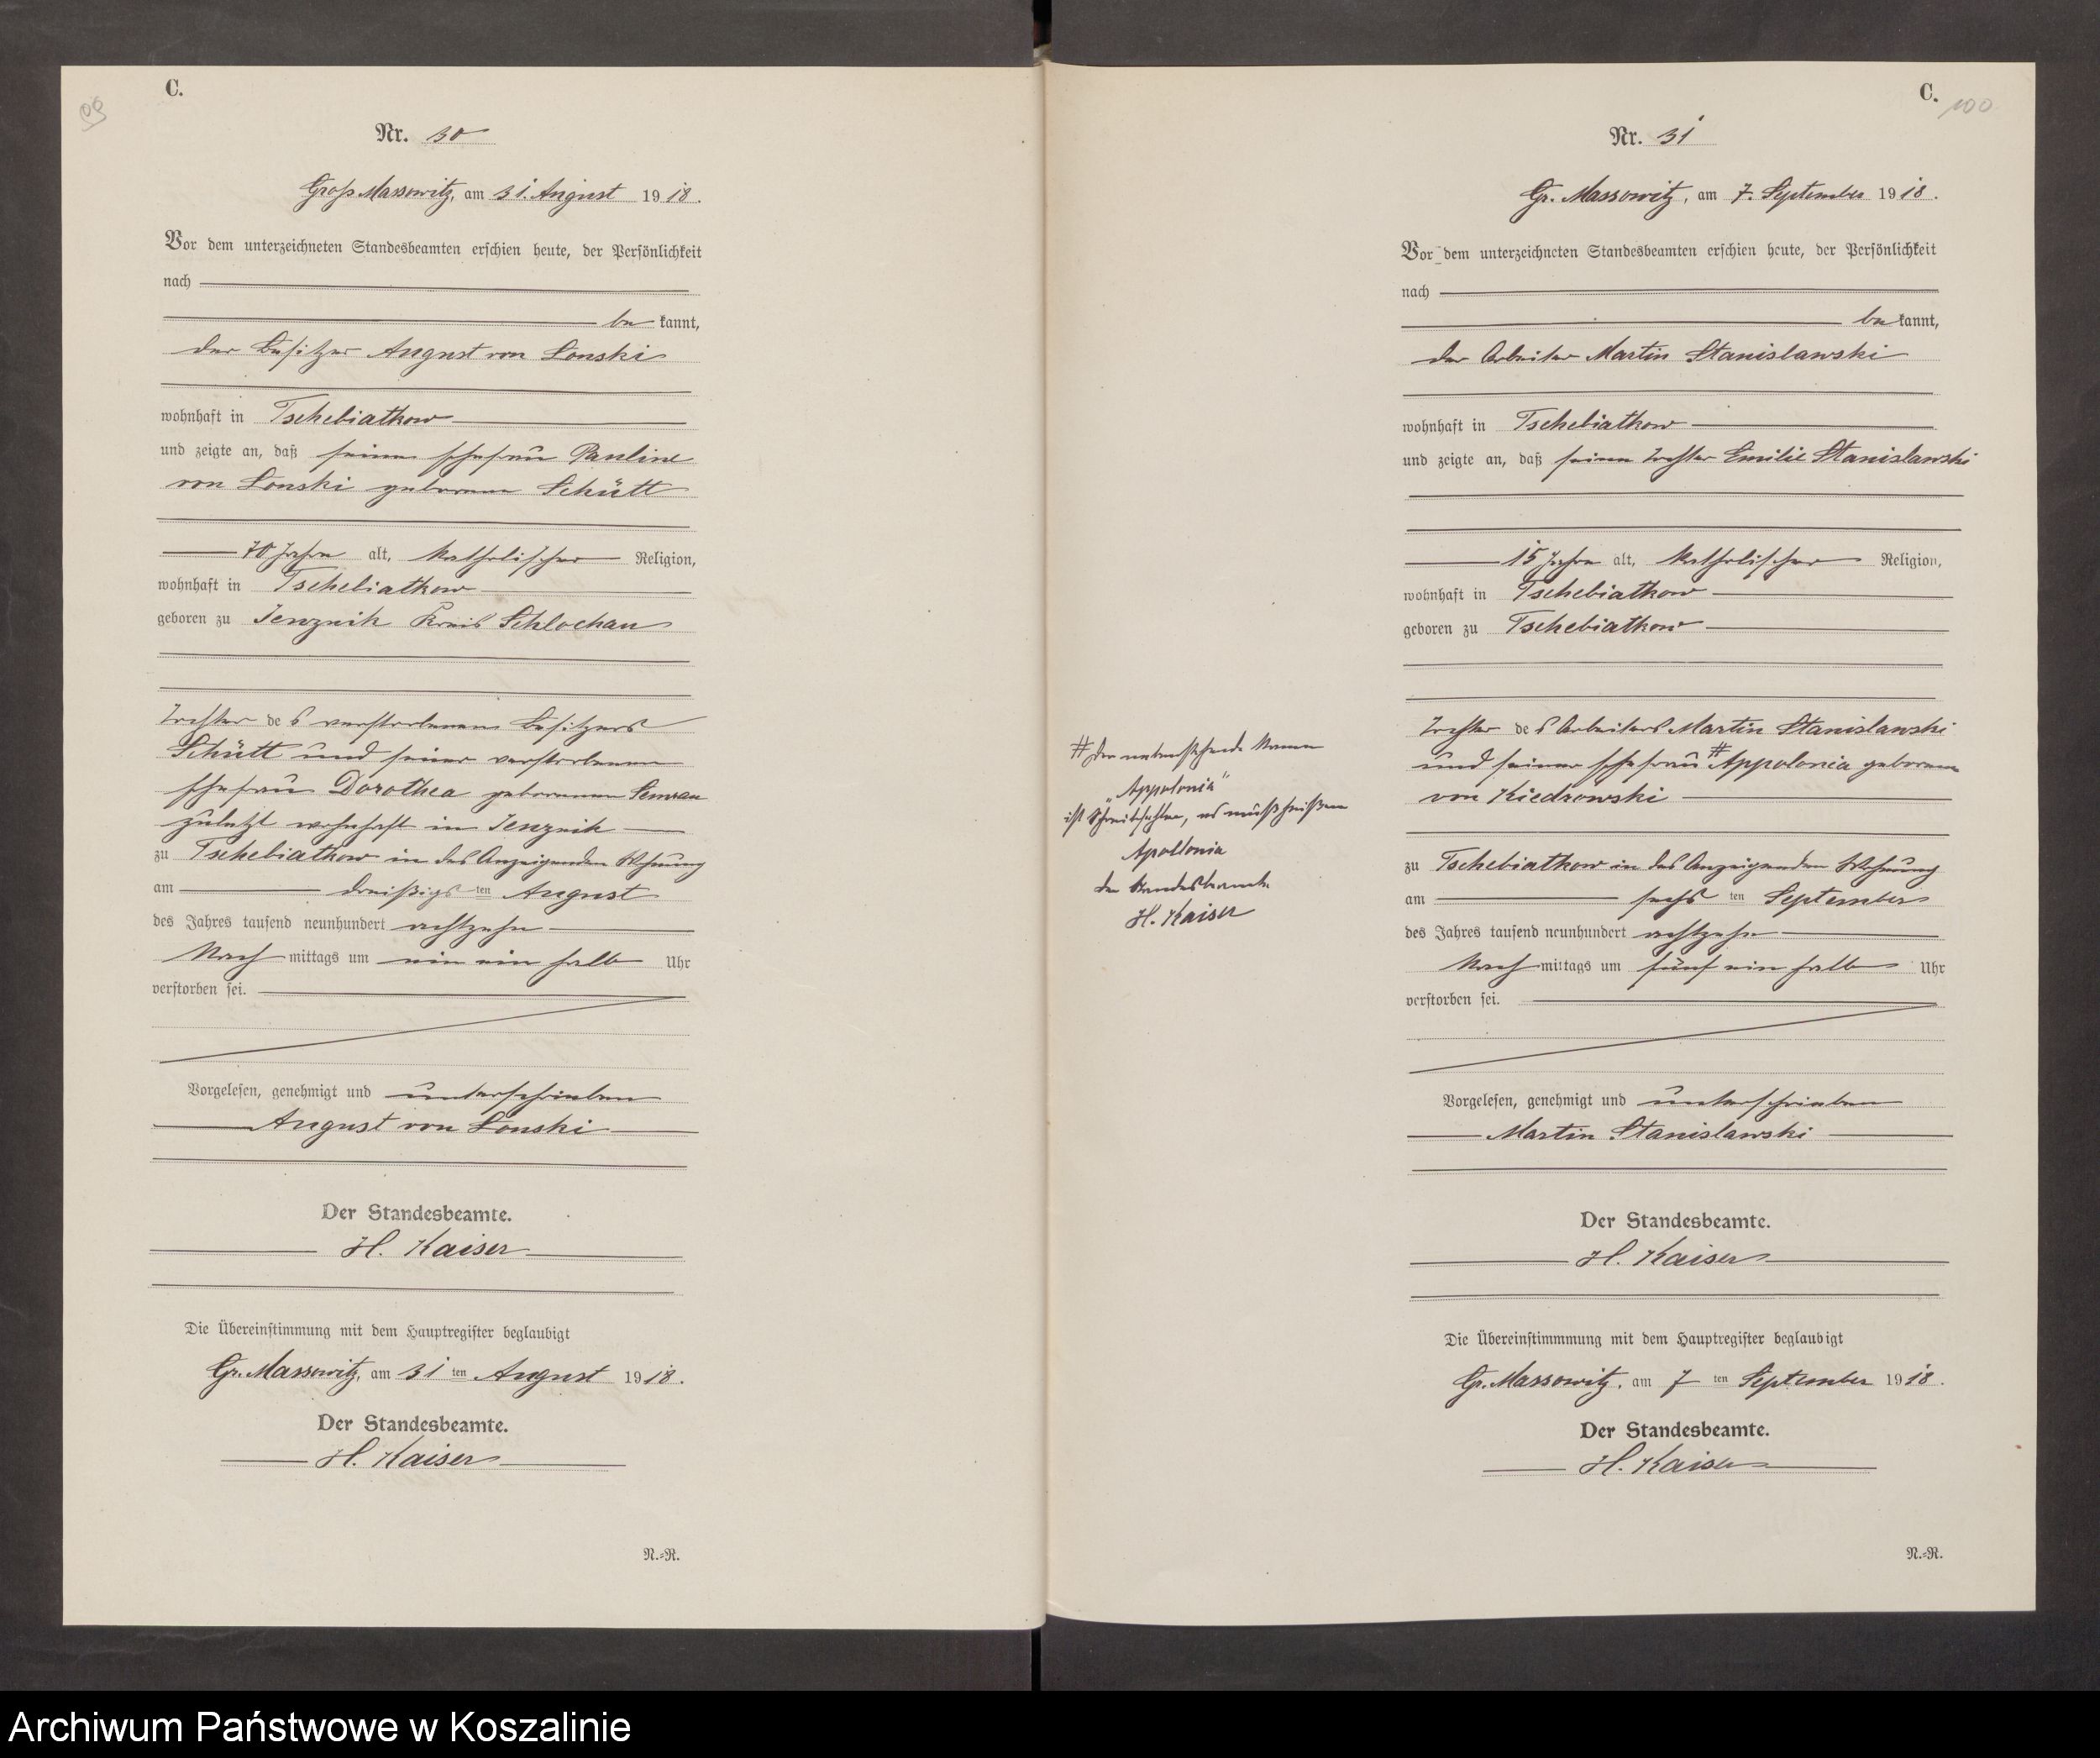 99
C.
Nr. 30
Groß Massowitz, am 31. August 1918.
Vor dem unterzeichneten Standesbeamten erschien heute, der Persönlichkeit
nach
be kannt,
der Besitzer August von Lonski
wohnhaft in Tschebiatkow
und zeigte an, daß seine Ehefrau Pauline
von Lonski geborene Schütt
70 Jahre alt, katholischer Religion,
wohnhaft in Tschebiatkow
geboren zu Jenznik Kreis Schlochau
Tochter des verstorbenen Besitzers
Schütt und seiner verstorbenen
Ehefrau Dorothea geborenen Semrau
zuletzt wohnhaft in Jenznik
zu Tschebiatkow in des Anzeigenden Wohnung
am dreißigsten August
des Jahres tausend neunhundert achtzehn
Nachmittags um ein ein halb Uhr
verstorben sei.
Vorgelesen, genehmigt und unterschrieben
August von Lonski
Der Standesbeamte.
H. Kaiser
Die Übereinstimmung mit dem Hauptregister beglaubigt
Gr. Massowitz, am 31ten August 1918.
Der Standesbeamte.
H. Kaiser
N.=R.
C.
100
Nr. 31
Gr. Massowitz, am 7. September 1918.
Vor dem unterzeichneten Standesbeamten erschien heute, der Persönlichkeit
nach
be kannt,
der Arbeiter Martin Stanislawski
wohnhaft in Tschebiatkow
und zeigte an, daß seine Tochter Emilie Stanislawski
15 Jahre alt, katholischer Religion,
wohnhaft in Tschebiatkow
geboren zu Tschebiatkow
Tochter des Arbeiters Martin Stanislawski
und seiner Ehefrau # Appolonia geborene
von Kiedrowski
zu Tschebiatkow in des Anzeigenden Wohnung
am sechsten September
des Jahres tausend neunhundert achtzehn
Nachmittags um fünf ein halb Uhr
verstorben sei.
Vorgelesen, genehmigt und unterschrieben
Martin Stanislawski
Der Standesbeamte.
H. Kaiser
Die Übereinstimmung mit dem Hauptregister beglaubigt
Gr. Massowitz, am 7ten September 1918.
Der Standesbeamte.
H. Kaiser
N.=R.
# Der nebenstehende Name
„Appolonia"
ist Schreibfehler, es muß heißen
Apollonia
der Standesbeamte
H. Kaiser
Archiwum Państwowe w Koszalinie